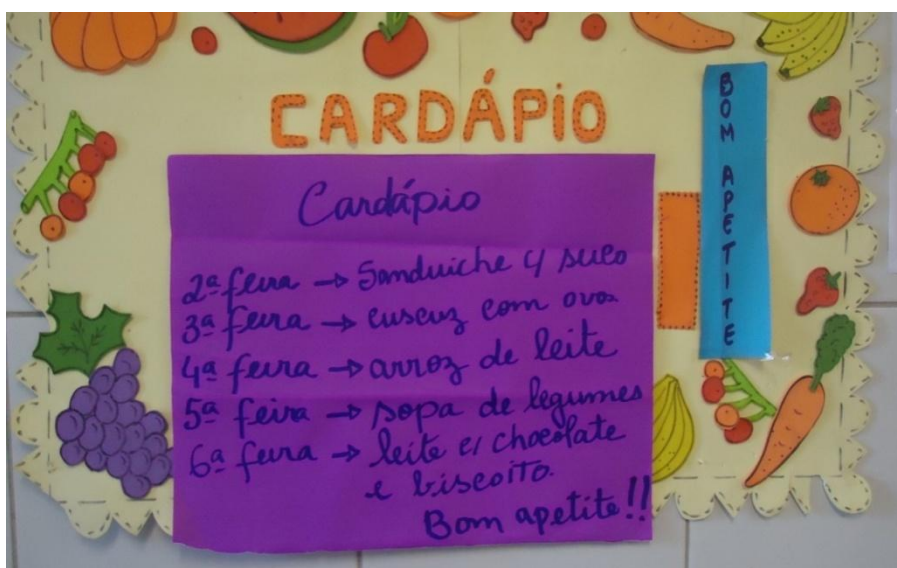 CARDÁPIO
BOM APETITE
Cardápio
2ª feira → Sanduiche c/ suco
3ª feira → cuscuz com ovos
4ª feira → arroz de leite
5ª feira → sopa de legumes
6ª feira → leite c/ chocolate
e biscoito.
Bom apetite!!